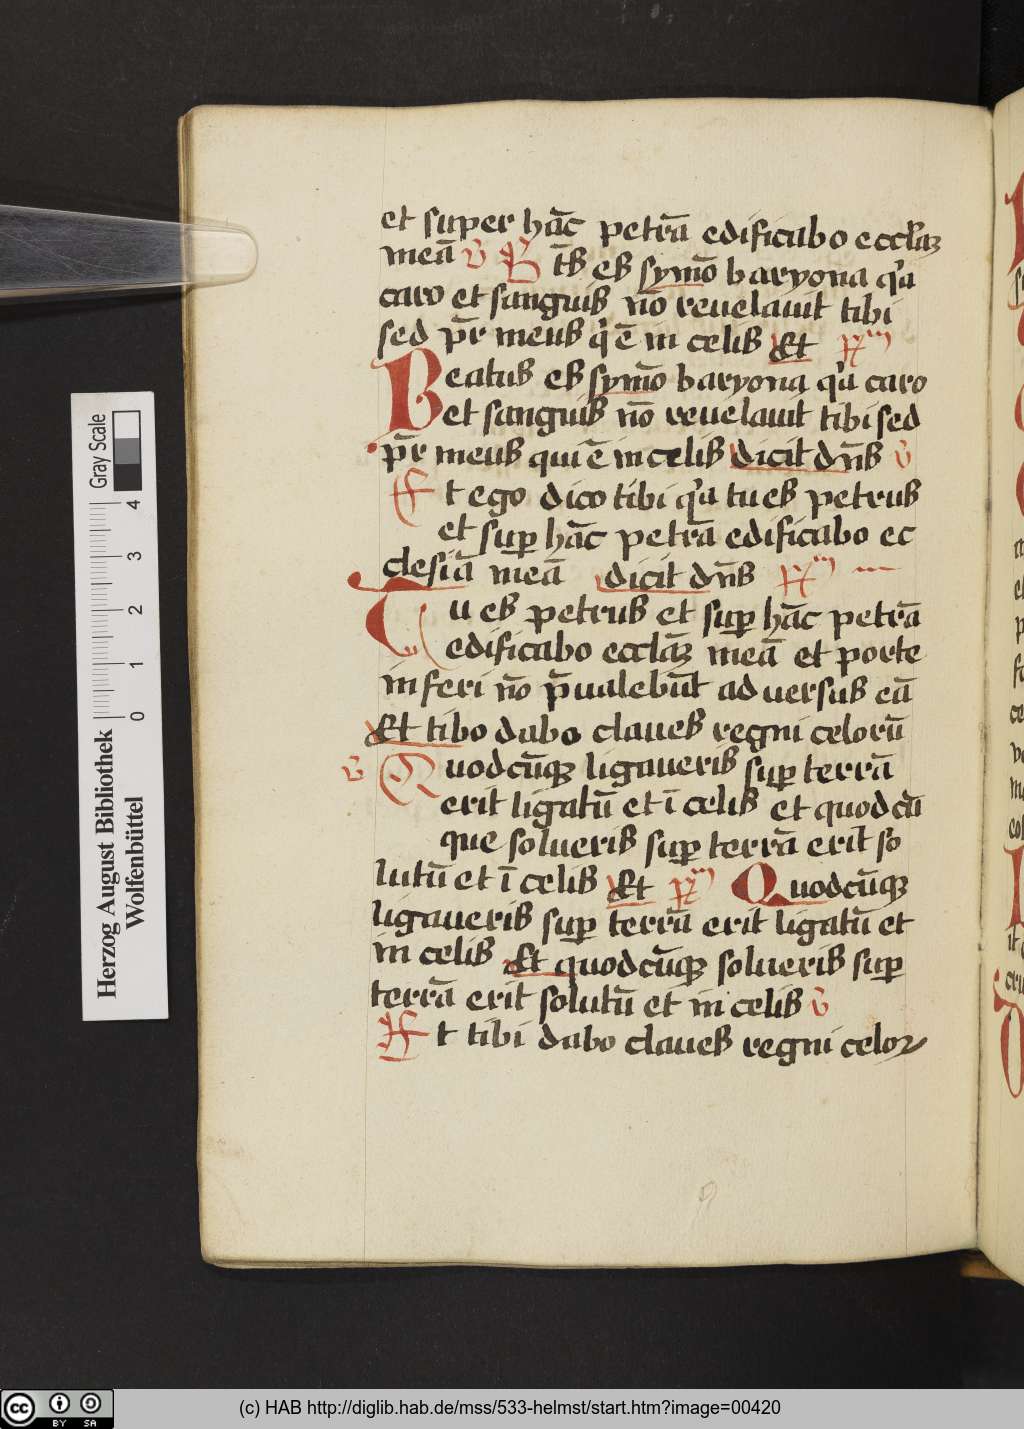 et super hāc petrā edificabo eccl'aꝫ
meā ỽ B t̄s es symō baryona q'a
caro et sanguis nō reuelauit tibi
sed pr̄ meus q' ē in celis Et Rm
Beatus es symō baryona q'a caro
et sanguis nō reuelauit tibi sed
pr̄ meus qui ē in celis dicit dn̄s ỽ
Et ego dico tibi q'a tu es petrus
et suꝑ hāc petrā edificabo ec
clesiā meā dicit dn̄s Rm
Tu es petrus et suꝑ hāc petrā
edificabo eccl̄aꝫ meā et porte
inferi nō p̄ualebūt aduersus eā
Et tibo dabo claues regni celorū
ỽ Quodcūqꝫ ligaueris suꝑ terrā
erit ligatū et ī celis et quodcū
que solueris suꝑ terrā erit so
lutū et ī celis Et Rm Quodcūqꝫ
ligaueris suꝑ terrā erit ligatū et
in celis Et quodcūqꝫ solueris suꝑ
terrā erit solutū et in celis ỽ
Et tibi dabo claues regni celoꝝ
Gray Scale
4
3
2
1
0
Herzog August Bibliothek
Wolfenbüttel
(c) HAB http://diglib.hab.de/mss/533-helmst/start.htm?image=00420
cc BY SA